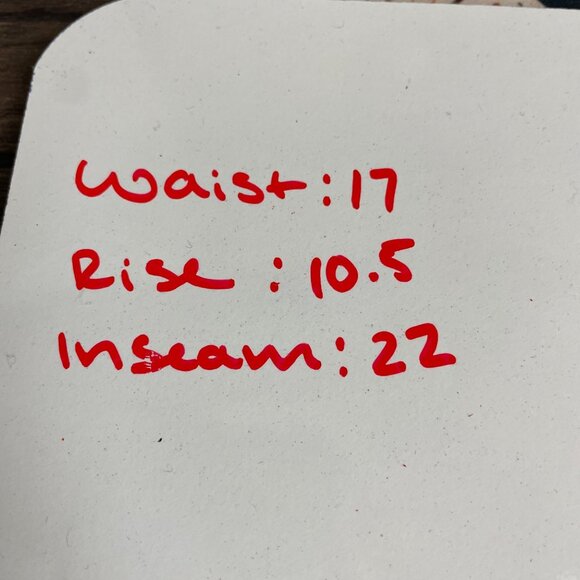 Waist: 17
Rise: 10.5
Inseam: 22